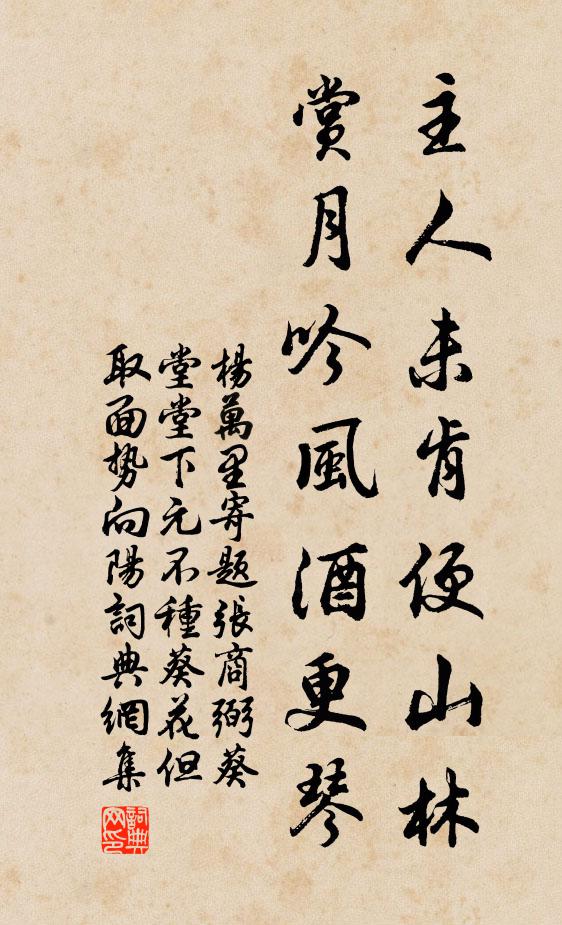 主人未肯便山林
賞月吟風酒更琴
楊萬里寄題張商弼葵
堂堂下元不種葵花但
取面势向陽詞典網集
詞典网印